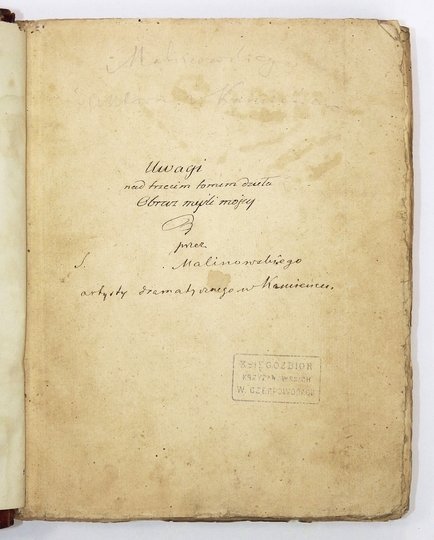 Uwagi
nad trzecim tomem dzieła
Obraz myśli mojej
przez
J. Malinowskiego
artysty dramatycznego w Kamieńcu.
KSIĘGOZBIÓR
W. CZERPOWODACH